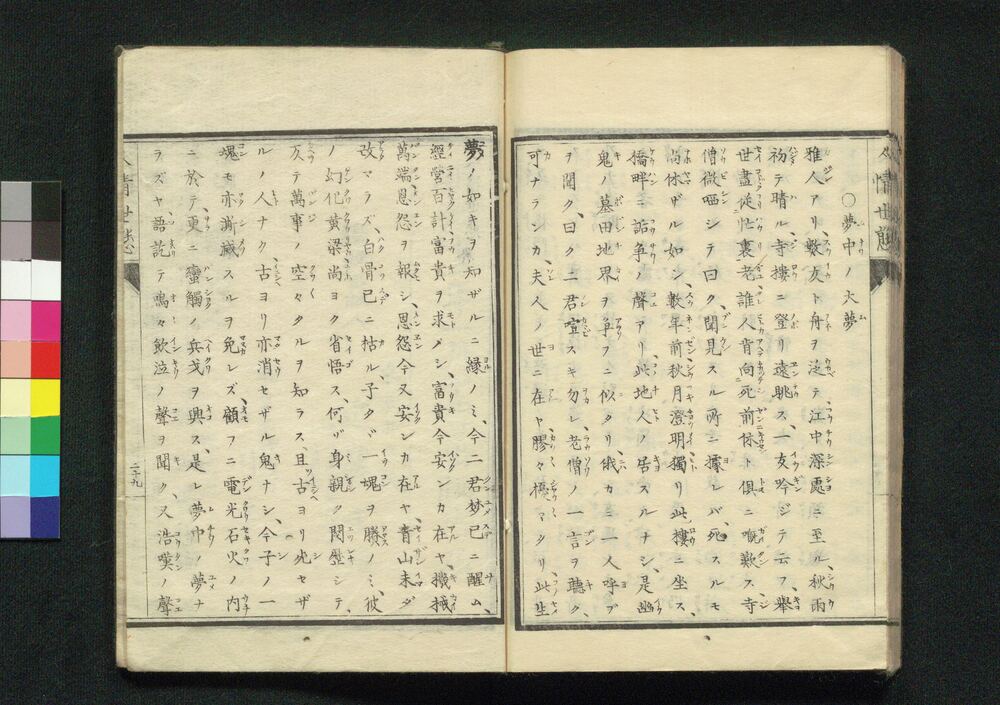 人情世態
○夢中ノ大夢
雅人アリ、數友ト舟ヲ泛テ、江中深處ニ至ル、秋雨
初テ晴ル、寺樓ニ登リ遠眺ス、一友吟ジテ云フ、擧
世盡從忙裏老誰人肯向死前休ト倶ニ嘅歎ス寺
僧微哂シテ曰ク、聞見スル所ニ據レバ、死スルモ
尚休ザル如シ、數年前秋月澄明獨リ此樓ニ坐ス、
橋畔ニ詬爭ノ聲アリ、此地人ノ居スルナシ、是幽
鬼ノ墓田地界ヲ爭フニ似タリ俄カニ一人呼ブ
ヲ聞ク、曰ク二君喧スキ勿レ、老僧ノ一言ヲ聽ク、
可ナランカ、夫人ノ世ニ在ヤ膠々擾々タリ、此生
夢ノ如キヲ知ザルニ縁ノミ、今二君梦已ニ醒ム、
經營百計富貴ヲ求メシ、富貴今安ンカ在ヤ、機械
萬端恩怨ヲ報シ、恩怨今又安ンカ在ヤ、青山未ダ
改マラズ、白骨已ニ枯ル、子タヾ一塊ヲ勝ノミ、彼
ノ幻化黄粱尚ヨク省悟ス、何ゾ身親ク閲歴シテ、
反テ萬事ノ空々タルヲ知ラス且ツ古ヨリ死セザ
ルノ人ナク、古ヨリ亦消セザル鬼ナシ、今子ノ一
塊モ亦澌滅スルヲ免レズ、顧フニ電光石火ノ内
ニ於テ、更ニ蠻觸ノ兵戈ヲ興ス、是レ夢中ノ夢ナ
ラズヤ語訖テ嗚々飲泣ノ聲ヲ聞ク、又浩嘆ノ聲
人情世態
二十九